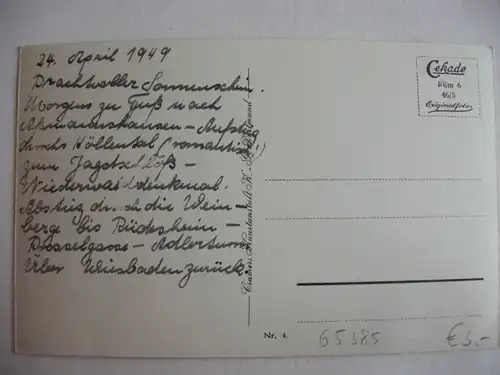 24. April 1949
Prachtvoller Sonnenschein.
Morgens zu Fuß nach
Aßmannshausen – Aufstieg
durchs Höllental (romantisch!)
zum Jagdschloß –
Niederwalddenkmal.
Abstieg durch die Wein-
berge bis Rüdesheim –
Drosselgasse – Adlerturm
Über Wiesbaden zurück.
Cekade
Rüm 6
46/5
Originalfoto
Cramers Kunstanstalt K.-G., Dortmund
Nr. 4.
65385
€ 3.-